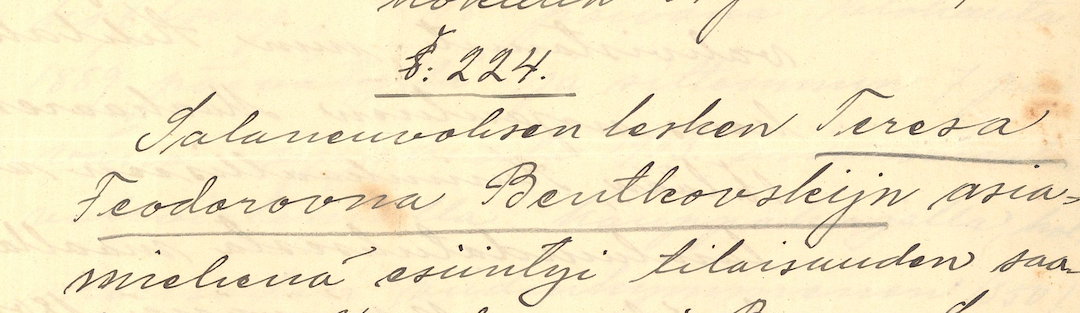 §: 224.
Salaneuvoksen lesken Teresa
Feodorovna Bentkovskijn asia-
miehenä esiintyi tilaisuuden saa-